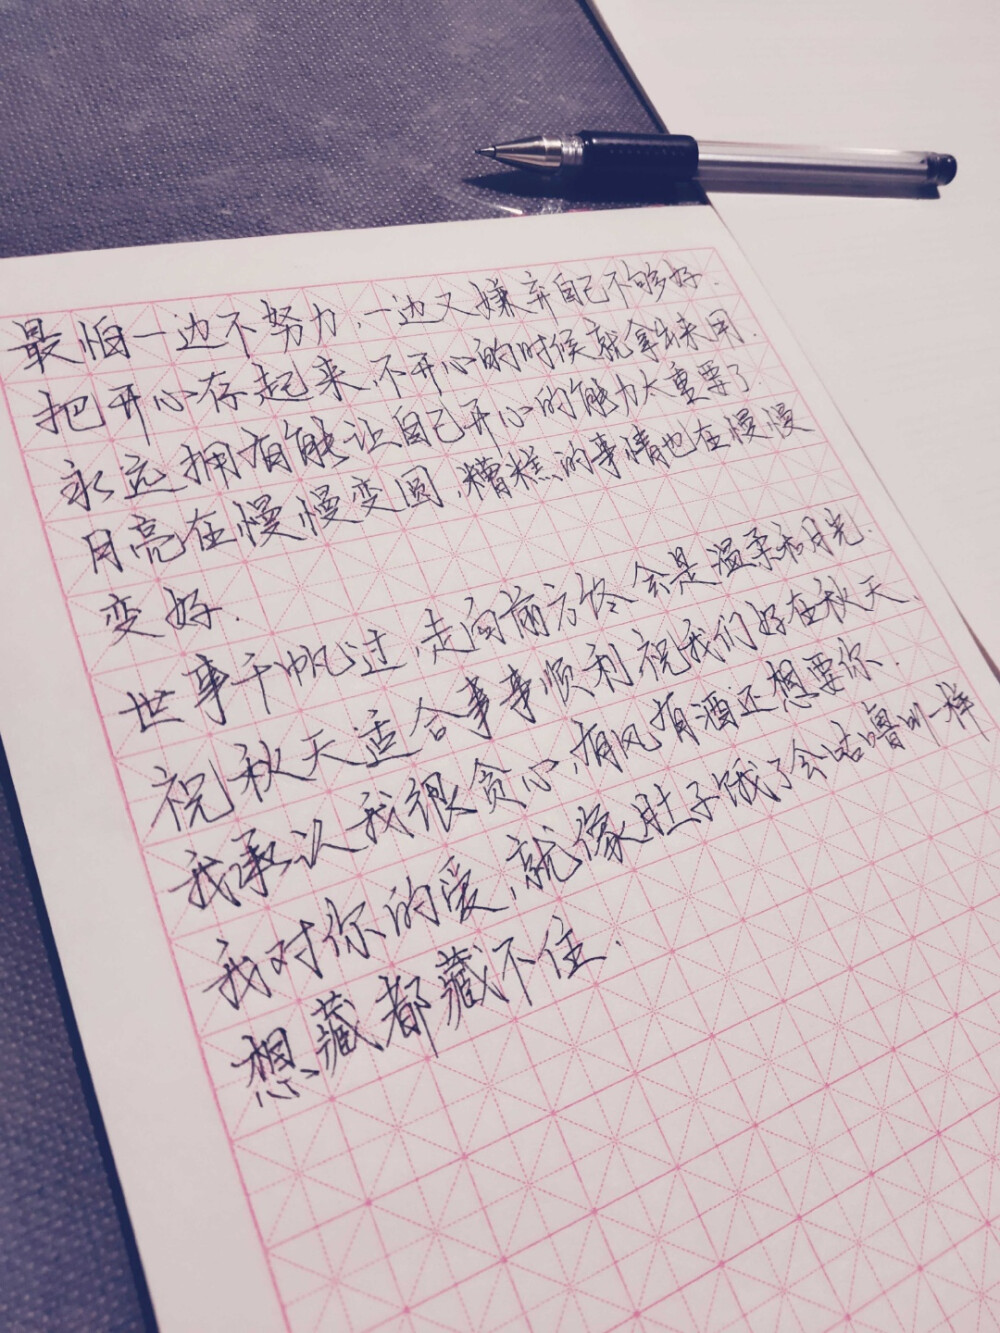 最怕一边不努力,一边又嫌弃自己不够好.
把开心存起来,不开心的时候就拿出来用.
永远拥有能让自己开心的能力太重要了.
月亮在慢慢变圆,糟糕的事情也在慢慢
变好.
世事千帆过,走向前方终会是温柔和月光.
祝秋天适合事事顺利祝我们好在秋天、
我承认我很贪心,有风有酒还想要你.
我对你的爱,就像肚子饿了会咕噜叫一样
想藏都藏不住.